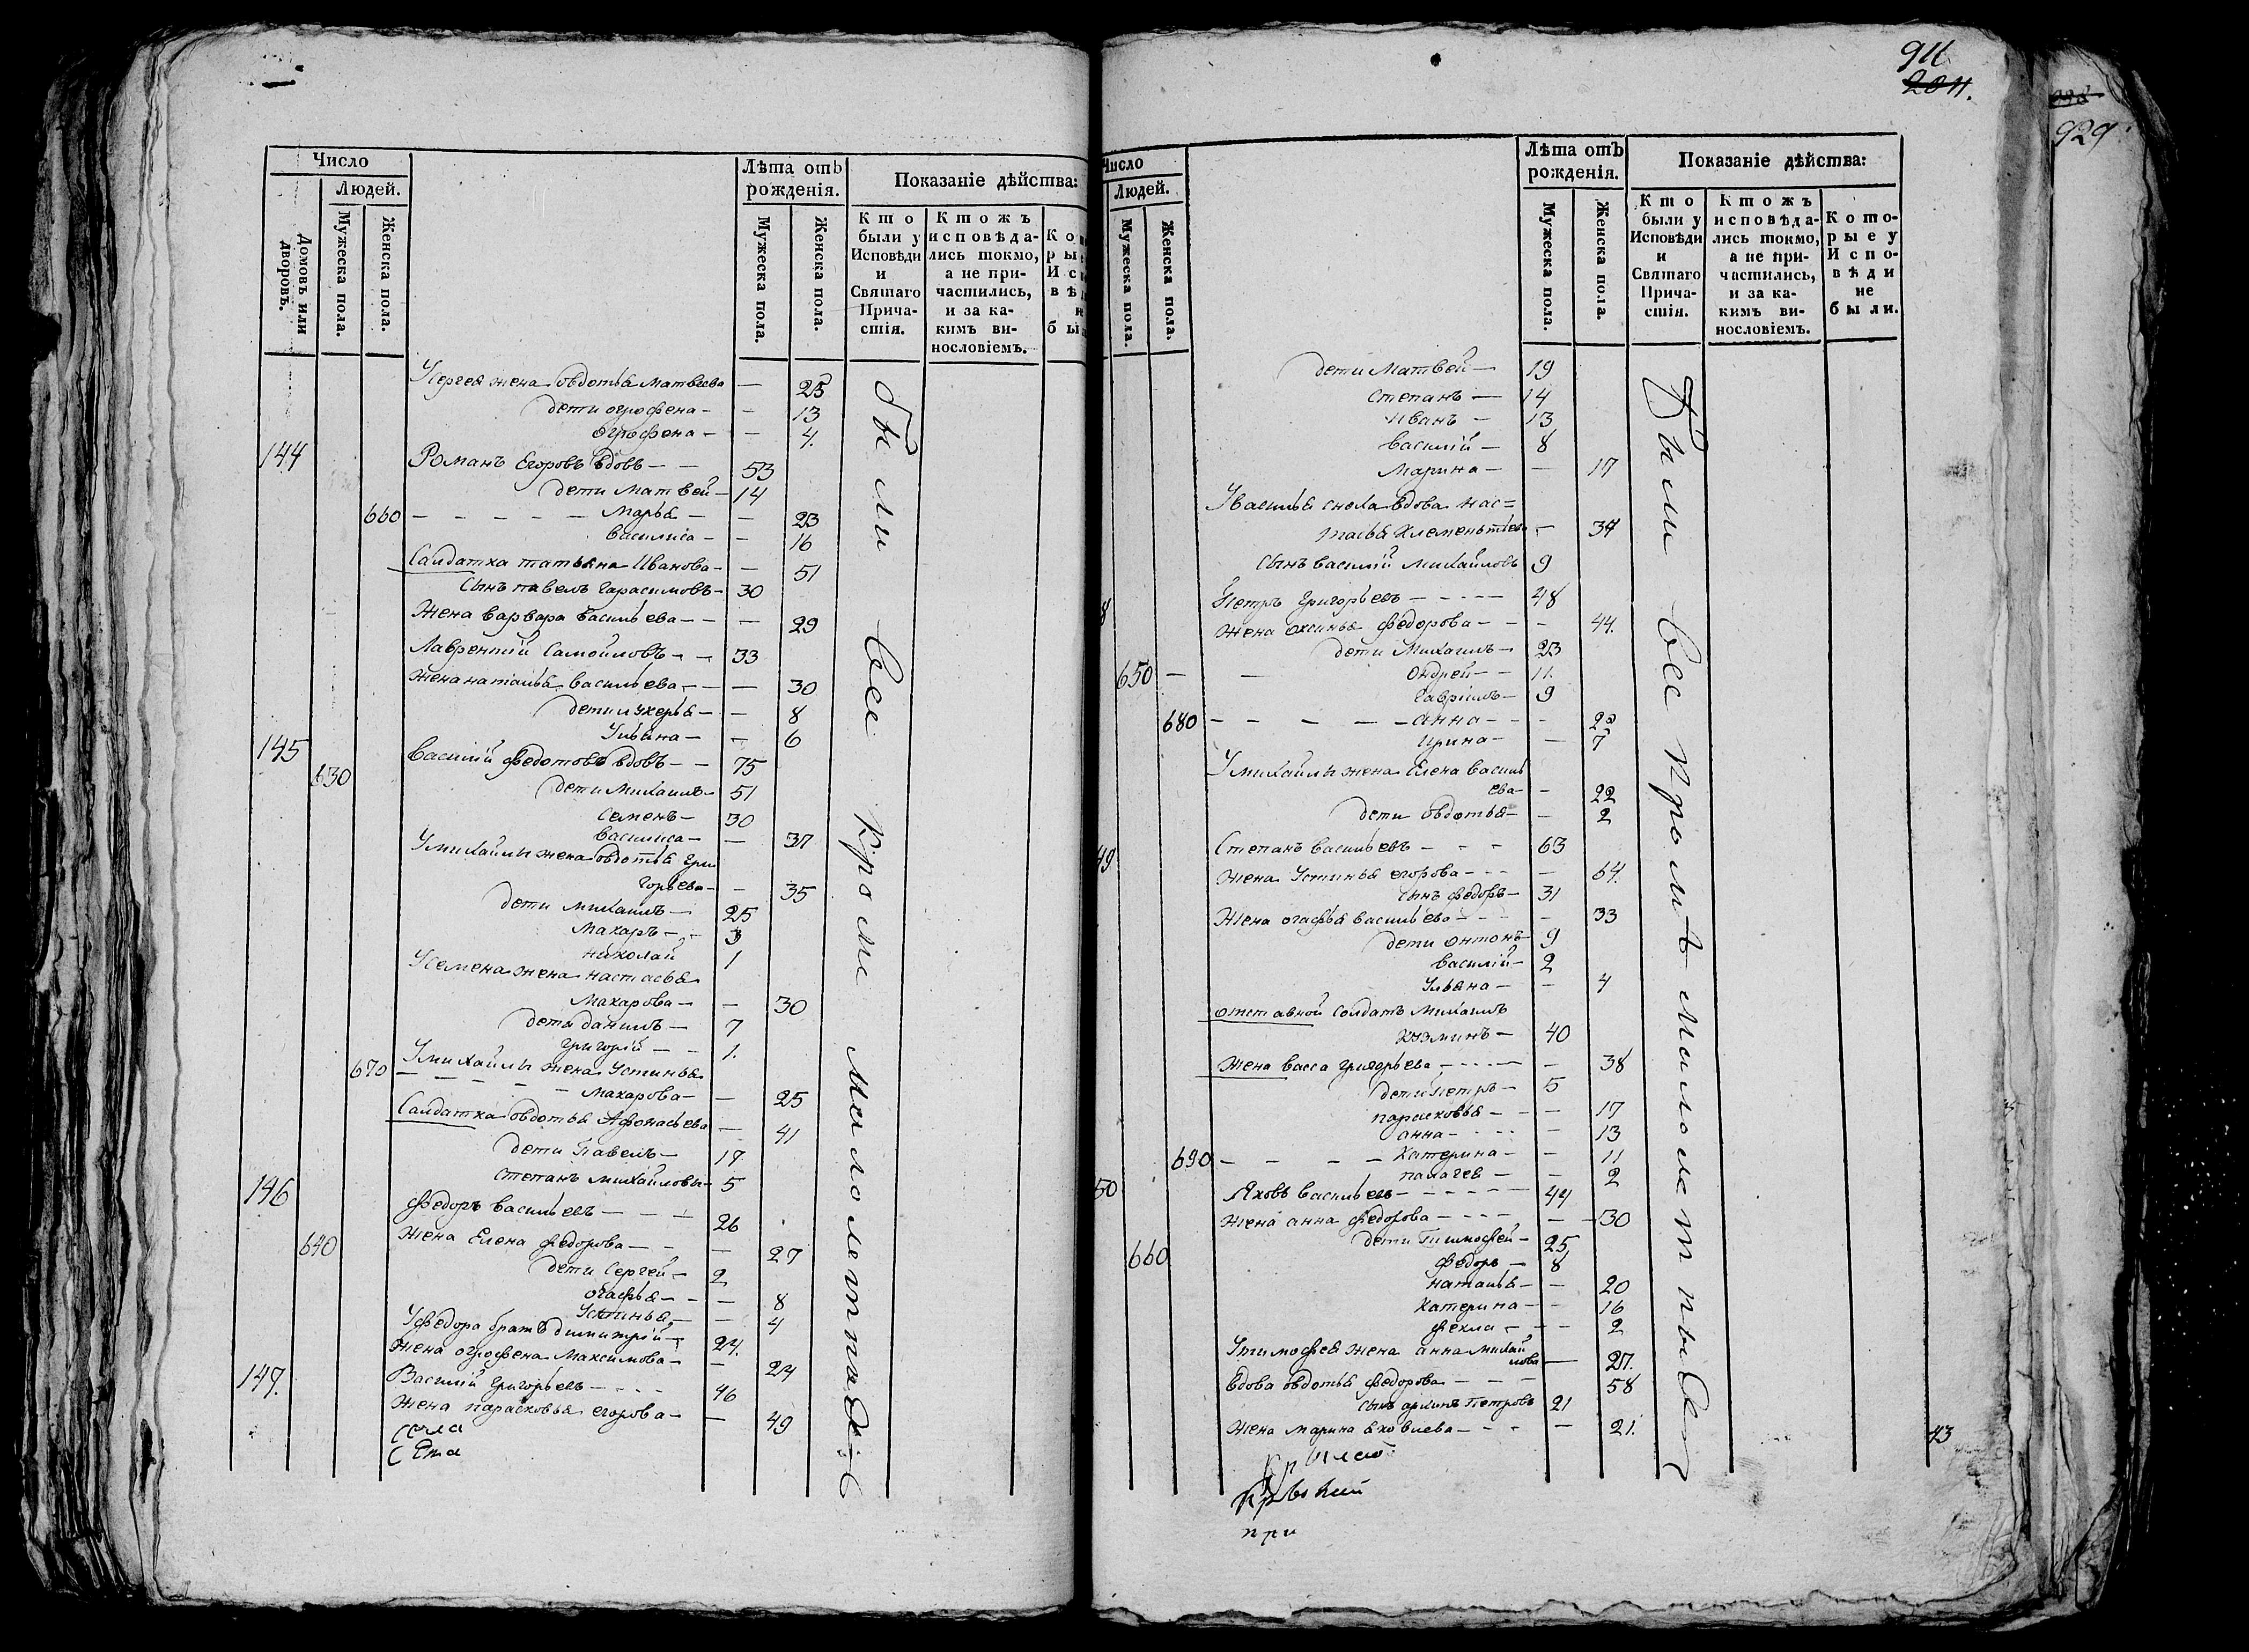 Число
Людей.
Домовъ или дворовъ.
Мужеска пола.
Женска пола.
Лѣта отъ рожденія.
Мужеска пола.
Женска пола.
Показаніе дѣйства:
Кто были у Исповѣди и Святаго Причастія.
Ктожъ исповѣдались токмо, а не причастились, и за какимъ винословіемъ.
У сергея жена овдотья матвеева — 25
дети огрофена — — 13
огрофена — — 4.
144 Романъ Егоровъ вдовъ — — 53
дети матвей — 14
660 — — — — — Марья — — 23
василиса — — 16
Салдатка татьяна Иванова — — 51
Сынъ павелъ Гарасимовъ — 30
Жена варвара васильева — — — 29
Лаврентий Самойловъ — — 33
Жена наталья васильева — — — 30
дети лукерья — — 8
Ульяна — — 6
145 Василий федотовъ вдовъ — — 75
630 дети Михаилъ — 51
Семенъ — 30
василиса — — 37
У михаилы жена овдотья гри
горьева — — 35
дети михаилъ — 25
Макаръ — — 3
николай 1
У семена жена настасья
Макарова — — 30
дети данилъ — 7
григорий — — 1.
670 У михайлы жена Устинья
— — — — — Макарова — — 25
Салдатка овдотья Афонасьева — 41
дети Павелъ — 17
степанъ михайловы — 5
146 Федоръ васильевъ — — — 26
640 Жена Елена федорова — — — 27
дети Сергей — 2
огафья — — — 8
Устинья — — 4
У федора братъ димитрий — 24.
Жена огрофена Максимова — — 24
147. Василий григорьевъ — — — — 46
Жена парасковья егорова — — 49
Были все кроме малолетныхъ
911
2011.
929
Число
Людей.
Мужеска пола.
Женска пола.
Лѣта отъ рожденія.
Мужеска пола.
Женска пола.
Показаніе дѣйства:
Кто были у Исповѣди и Святаго Причастія.
Ктожъ исповѣдались токмо, а не причастились, и за какимъ винословіемъ.
Которые у Исповѣди не были.
дети Матвей — 19
степанъ — 14
иванъ — 13
василий — 8
марина — — 17
У василья сноха вдова нас=
тасья клементьева — 34
Сынъ василий михайловъ 9
8 Петръ григорьевъ — — — — 48
Жена оксинья федорова — — — 44.
дети Михаилъ — 23
650 — — Ондрей — — 11.
гаврилъ — 9
680 — — — — — анна — — — 22
Ирина — — 7
У михайлы жена Елена василь
ева — — 22
дети овдотья — — 2
49 Степанъ васильевъ — — — 63
Жена Устинья егорова — — — — 64.
сынъ федоръ — 31
Жена огафья васильева — — — — 33
дети онтонъ — 9
василий — 2
Ульяна — — 4
отставной солдатъ михаилъ
кузминъ — 40
Жена васса григорьева — — — — — 38
дети петръ — 5
парасковья — — — 17
анна — — — — 13
690 — — — — катерина — — 11
палагея — — 2
50 Яковъ васильевъ — — — — — 44
Жена анна федорова — — — — — 30
дети Тимофей — 25
660 федоръ — 8
наталья — — 20
катерина — — 16
фекла — — — 2
У тимофея жена анна михай
лова — 27.
вдова овдотья федорова — — — 58
сынъ Петровъ 21
Жена марина яковлева — — — — 21.
Были все кромѣ малолетныхъ
43
при